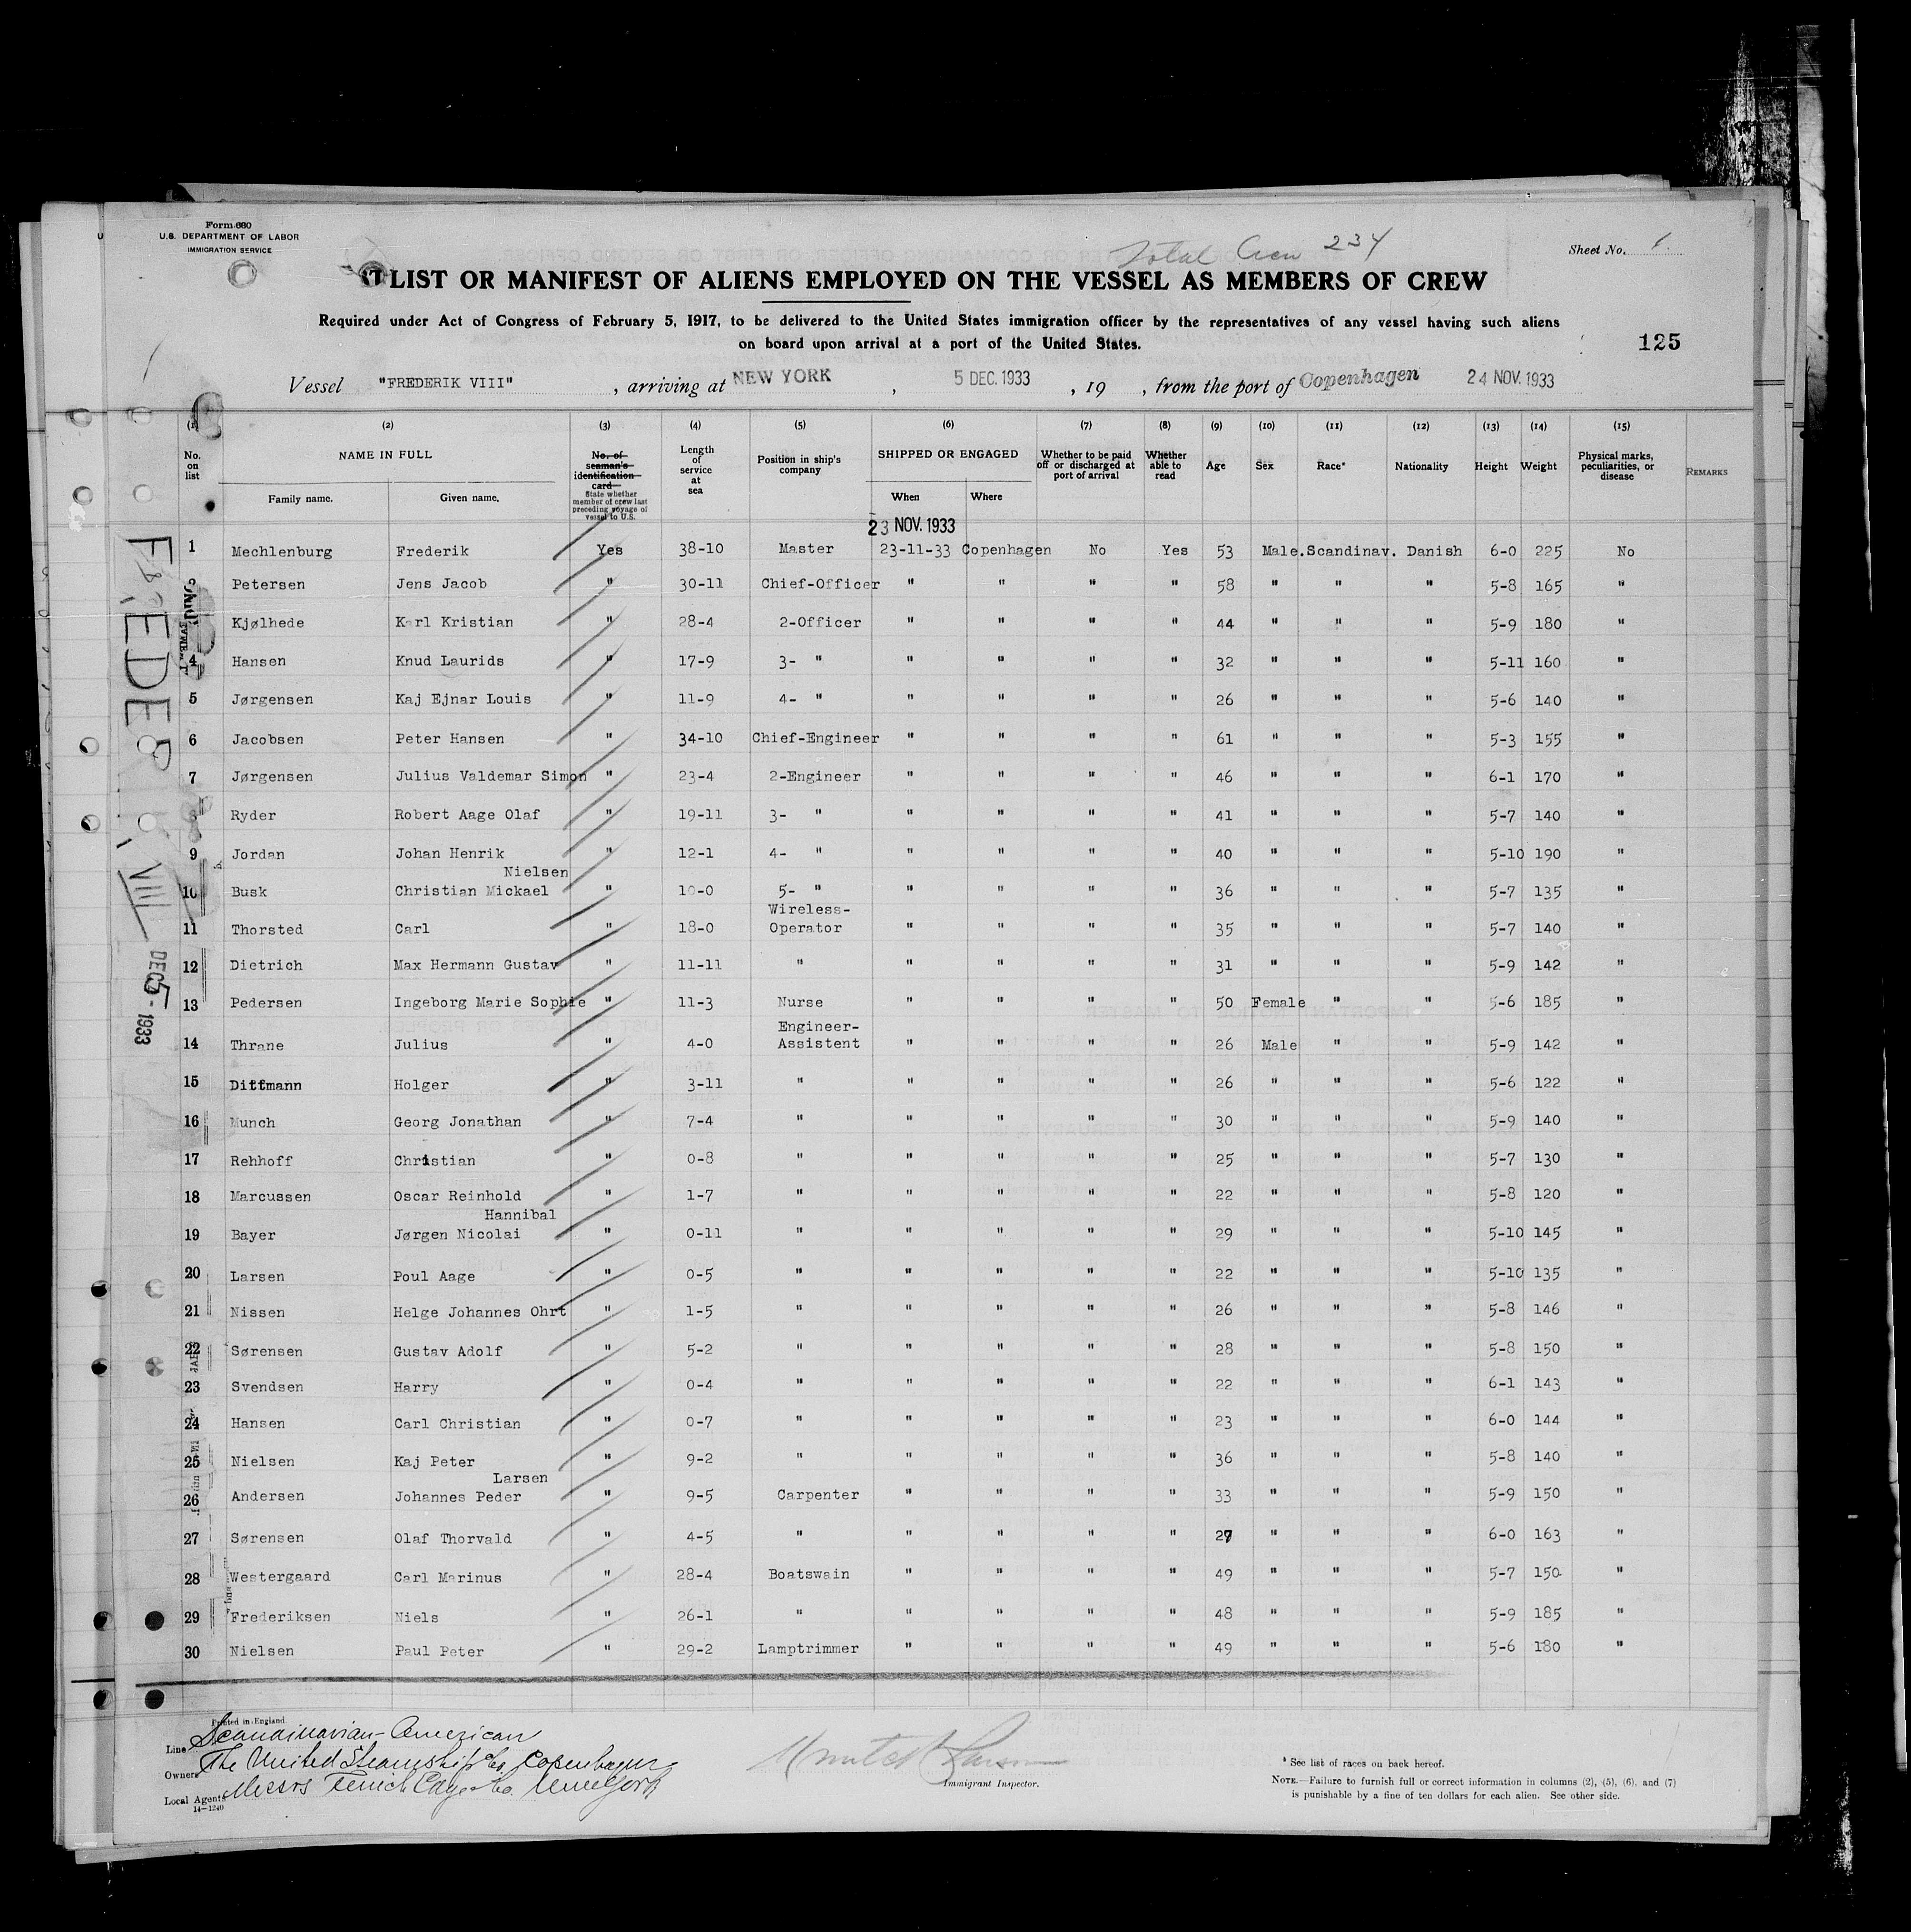 Form 680
U.S. DEPARTMENT OF LABOR
IMMIGRATION SERVICE
Total Crew 234
Sheet No. 1.
LIST OR MANIFEST OF ALIENS EMPLOYED ON THE VESSEL AS MEMBERS OF CREW
Required under Act of Congress of February 5, 1917, to be delivered to the United States immigration officer by the representatives of any vessel having such aliens
on board upon arrival at a port of the United States.
125
Vessel "FREDERIK VIII" , arriving at NEW YORK , 5 DEC. 1933 , 19 , from the port of Copenhagen 24 NOV. 1933
(1) (2) (3) (4) (5) (6) (7) (8) (9) (10) (11) (12) (13) (14) (15)
No. on list NAME IN FULL Family name. Given name. No. of seaman's identification card State whether member of crew last preceding voyage of vessel to U.S. Length of service at sea Position in ship's company SHIPPED OR ENGAGED When Where Whether to be paid off or discharged at port of arrival Whether able to read Age Sex Race* Nationality Height Weight Physical marks, peculiarities, or disease REMARKS
23 NOV. 1933
1 Mechlenburg Frederik Yes 38-10 Master 23-11-33 Copenhagen No Yes 53 Male. Scandinav. Danish 6-0 225 No
Petersen Jens Jacob " 30-11 Chief-Officer " " " " 58 " " " 5-8 165 "
Kjølhede Karl Kristian " 28-4 2-Officer " " " " 44 " " " 5-9 180 "
4 Hansen Knud Laurids " 17-9 3- " " " " " 32 " " " 5-11 160 "
5 Jørgensen Kaj Ejnar Louis " 11-9 4- " " " " " 26 " " " 5-6 140 "
6 Jacobsen Peter Hansen " 34-10 Chief-Engineer " " " " 61 " " " 5-3 155 "
7 Jørgensen Julius Valdemar Simon " 23-4 2-Engineer " " " " 46 " " " 6-1 170 "
8 Ryder Robert Aage Olaf " 19-11 3- " " " " " 41 " " " 5-7 140 "
9 Jordan Johan Henrik " 12-1 4- " " " " " 40 " " " 5-10 190 "
Nielsen
10 Busk Christian Mickael " 10-0 5- " " " " " 36 " " " 5-7 135 "
Wireless-
11 Thorsted Carl " 18-0 Operator " " " " 35 " " " 5-7 140 "
12 Dietrich Max Hermann Gustav " 11-11 " " " " " 31 " " " 5-9 142 "
13 Pedersen Ingeborg Marie Sophie " 11-3 Nurse " " " " 50 Female " " 5-6 185 "
Engineer-
14 Thrane Julius " 4-0 Assistent " " " " 26 Male " " 5-9 142 "
15 Dittmann Holger " 3-11 " " " " " 26 " " " 5-6 122 "
16 Munch Georg Jonathan " 7-4 " " " " " 30 " " " 5-9 140 "
17 Rehhoff Christian " 0-8 " " " " " 25 " " " 5-7 130 "
18 Marcussen Oscar Reinhold " 1-7 " " " " " 22 " " " 5-8 120 "
Hannibal
19 Bayer Jørgen Nicolai " 0-11 " " " " " 29 " " " 5-10 145 "
20 Larsen Poul Aage " 0-5 " " " " " 22 " " " 5-10 135 "
21 Nissen Helge Johannes Ohrt " 1-5 " " " " " 26 " " " 5-8 146 "
22 Sørensen Gustav Adolf " 5-2 " " " " " 28 " " " 5-8 150 "
23 Svendsen Harry " 0-4 " " " " " 22 " " " 6-1 143 "
24 Hansen Carl Christian " 0-7 " " " " " 23 " " " 6-0 144 "
25 Nielsen Kaj Peter " 9-2 " " " " " 36 " " " 5-8 140 "
Larsen
26 Andersen Johannes Peder " 9-5 Carpenter " " " " 33 " " " 5-9 150 "
27 Sørensen Olaf Thorvald " 4-5 " " " " " 27 " " " 6-0 163 "
28 Westergaard Carl Marinus " 28-4 Boatswain " " " " 49 " " " 5-7 150 "
29 Frederiksen Niels " 26-1 " " " " " 48 " " " 5-9 185 "
30 Nielsen Paul Peter " 29-2 Lamptrimmer " " " " 49 " " " 5-6 180 "
VIII
DEC 5 - 1933
Printed in England.
Line Scandinavian-American
Owners The United Steamship Co Copenhagen
Local Agents Messrs Edge Co. New York
14-1240
Immigrant Inspector.
* See list of races on back hereof.
NOTE.—Failure to furnish full or correct information in columns (2), (5), (6), and (7)
is punishable by a fine of ten dollars for each alien. See other side.